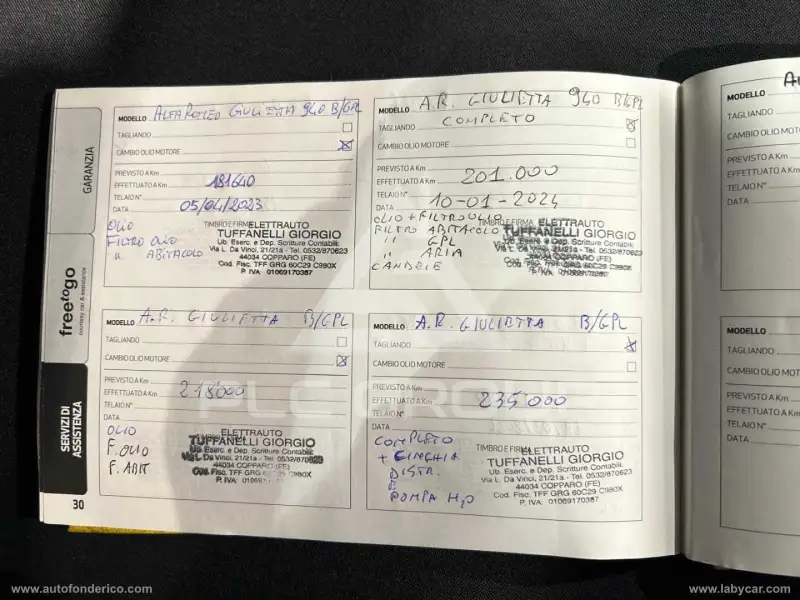 GARANZIA
freetogo
courtesy car & assistance
SERVIZI DI
ASSISTENZA
30
MODELLO ALFA ROMEO GIULIETTA 940 B/GPL
TAGLIANDO
CAMBIO OLIO MOTORE
PREVISTO A Km
EFFETTUATO A Km 181640
TELAIO N°
DATA 05/04/2023
OLIO
FILTRO OLIO
" ABITACOLO
TIMBRO E FIRMA ELETTRAUTO
TUFFANELLI GIORGIO
Ub. Eserc. e Dep. Scritture Contabili:
Via L. Da Vinci, 21/21a - Tel. 0532/870623
44034 COPPARO (FE)
Cod. Fisc. TFF GRG 60C29 C980X
P. IVA: 01069170387
MODELLO A.R. GIULIETTA 940 B/GPL
COMPLETO
TAGLIANDO
CAMBIO OLIO MOTORE
PREVISTO A Km
EFFETTUATO A Km 201.000
TELAIO N°
DATA 10-01-2024
OLIO + FILTRO OLIO
FILTRO ABITACOLO
" GPL
" ARIA
CANDELE
TIMBRO E FIRMA ELETTRAUTO
TUFFANELLI GIORGIO
Ub. Eserc. e Dep. Scritture Contabili:
Via L. Da Vinci, 21/21a - Tel. 0532/870623
44034 COPPARO (FE)
Cod. Fisc. TFF GRG 60C29 C980X
P. IVA: 01069170387
MODELLO A.R. GIULIETTA B/GPL
TAGLIANDO
CAMBIO OLIO MOTORE
PREVISTO A Km
EFFETTUATO A Km 218000
TELAIO N°
DATA
OLIO
F. OLIO
F. ABIT
ELETTRAUTO
TUFFANELLI GIORGIO
Ub. Eserc. e Dep. Scritture Contabili:
Via L. Da Vinci, 21/21a - Tel. 0532/870623
44034 COPPARO (FE)
Cod. Fisc. TFF GRG 60C29 C980X
P. IVA: 01069
MODELLO A.R. GIULIETTA B/GPL
TAGLIANDO
CAMBIO OLIO MOTORE
PREVISTO A Km
EFFETTUATO A Km 235000
TELAIO N°
DATA
COMPLETO
+ CINGHIA
DISTR.
E
POMPA H2O
TIMBRO E FIRMA ELETTRAUTO
TUFFANELLI GIORGIO
Ub. Eserc. e Dep. Scritture Contabili:
Via L. Da Vinci, 21/21a - Tel. 0532/870623
44034 COPPARO (FE)
Cod. Fisc. TFF GRG 60C29 C980X
P. IVA: 01069170387
MODELLO
TAGLIANDO
CAMBIO OLIO
PREVISTO A Km
EFFETTUATO A
TELAIO N°
DATA
MODELLO
TAGLIANDO
CAMBIO OLIO M
PREVISTO A Km
EFFETTUATO A
TELAIO N°
DATA
PLC GROUP
www.autofonderico.com
www.labycar.com